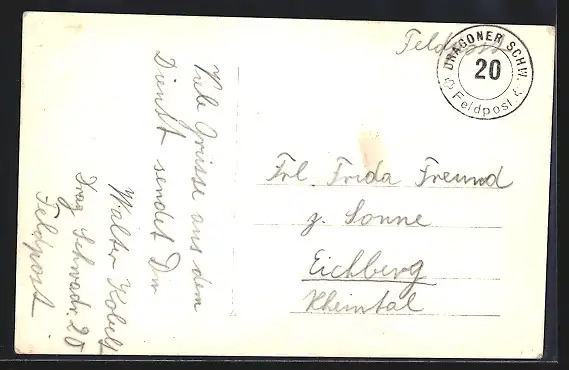 Feldpost
DRAGONER SCHW.
20
Feldpost
Viele Grüsse aus dem
Dienst sendet Dir
Walter Kobelt
Drag. Schwadr. 20
Feldpost
Frl. Frida Freund
z. Sonne
Eichberg
Rheintal